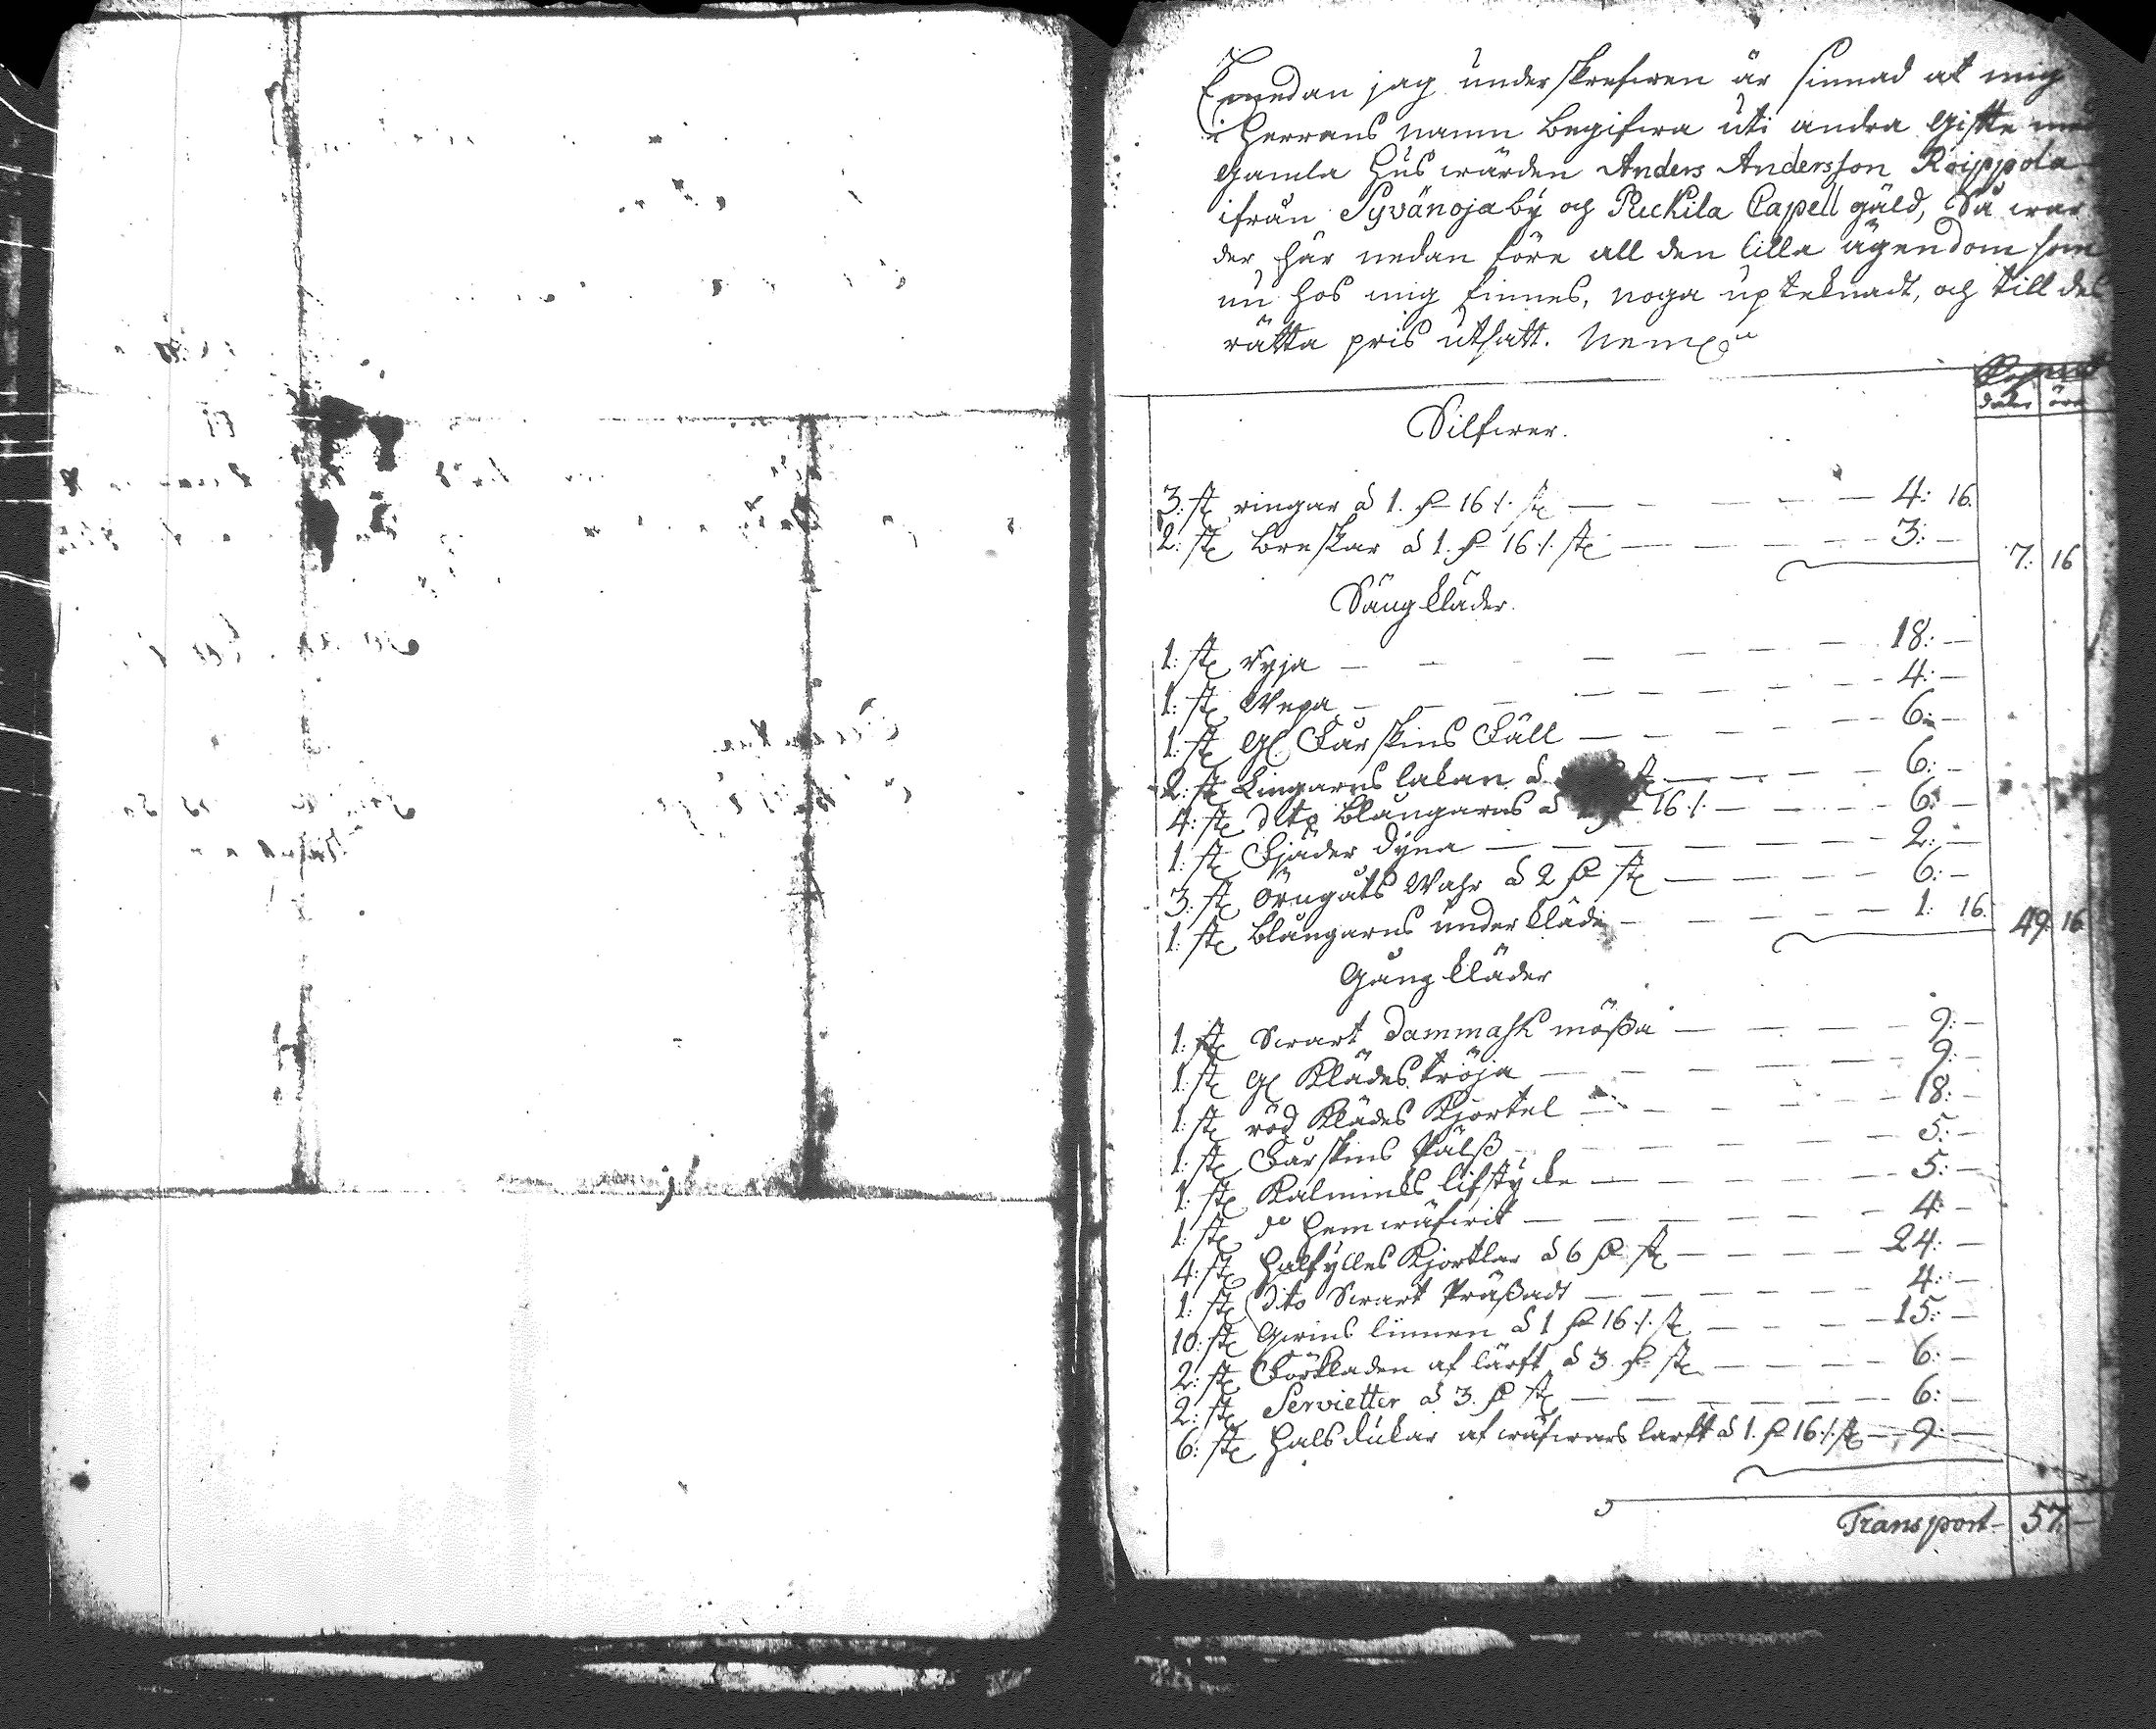 Emedan jag underskrefwen är sinnad at mig
i Herrans namn begifwa uti andra Gifte med
gamla Huswärden Anders Andersson Roippola
ifrån Syvänoja by och Ruckila Capell gäld, Så war
der här nedan före all den lilla ägendom som
nu hos mig finnes, noga upteknadt, och till des
rätta pris utsatt. Neml:n
daler öre
Silfwer.
3: st: ringar à 1. D 16 /: st: — 4: 16.
2: st: breskar à 1. D 16 /: st: — 3: —
7: 16
Sängkläder.
1: st: ryja — 18: —
1: st: Wepa — 4: —
1: st: Gl. Fårskins Fäll — 6: —
2: st: Lingarns lakan à st: — 6: —
4: st: dito blångarns à 16 /: — 6: —
1: st: Fjäder dyna — 2: —
3: st: Örngåts Wahr à 2 D st: — 6: —
1: st: blångarns underkläde — 1: 16.
49: 16
Gångkläder
1: st: Swart Dammask mößa — 9: —
1: st: Gl Klädes tröja — 9: —
1: st: röd Klädes Kjortel — 18: —
1: st: Fårskins Pälß — 5: —
1: st: Kalmincks lifstycke — 5: —
1: st: do Hemwäfwit — 4: —
4: st: Halfylles Kjortlar à 6 D st: — 24: —
1: st: dito Swart Präßadt — 4: —
10: st: Qwins linnen à 1 D 16 /: st: — 15: —
2: st: Förkladen af lärft à 3. D st: — 6: —
2: st: Servietter à 3. D st: — 6: —
6: st: Halsdukar af wäfwars larft à 1. D 16 /: st: — 9: —
Transport — 57: —